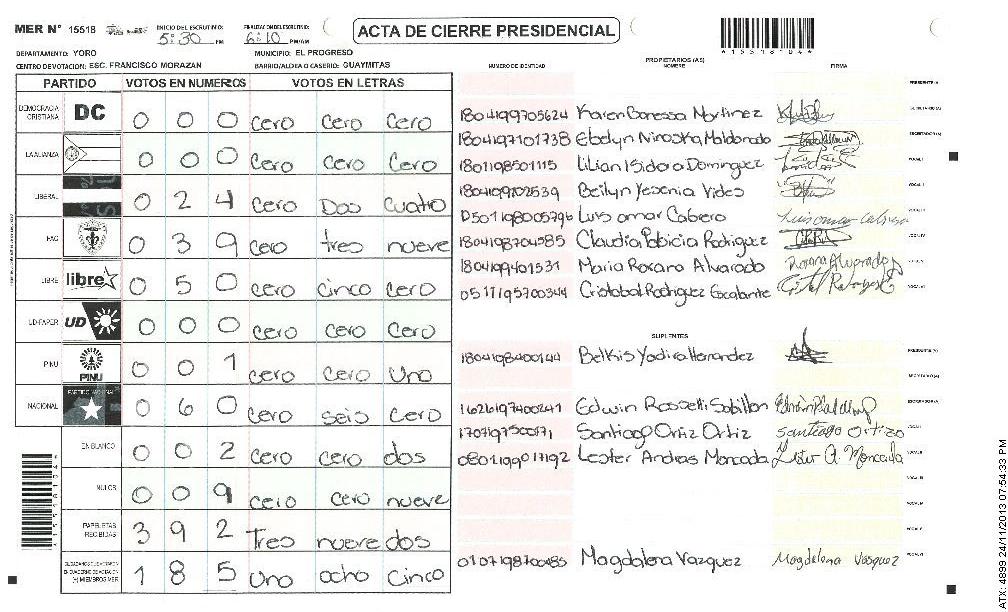 MER N° 15518 INICIO DEL ESCRUTINIO: 5:30 PM FINALIZACION ESCRUTINIO: 6:10 PM/AM
ACTA DE CIERRE PRESIDENCIAL
DEPARTAMENTO: YORO MUNICIPIO: EL PROGRESO
CENTRO DE VOTACION: ESC. FRANCISCO MORAZAN BARRIO/ALDEA O CASERIO: GUAYMITAS
PARTIDO VOTOS EN NUMEROS VOTOS EN LETRAS
DEMOCRACIA CRISTIANA DC 0 0 0 Cero Cero Cero
LA ALIANZA 0 0 0 Cero Cero Cero
LIBERAL 0 2 4 Cero Dos Cuatro
FAC 0 3 9 Cero tres nueve
LIBRE libre 0 5 0 Cero Cinco Cero
UD-FAPER UD 0 0 0 Cero Cero Cero
PINU PINU 0 0 1 Cero Cero Uno
NACIONAL PARTIDO NACIONAL 0 6 0 Cero seis Cero
EN BLANCO 0 0 2 Cero Cero dos
NULOS 0 0 9 Cero Cero nueve
PAPELETAS RECIBIDAS 3 9 2 Tres nueve dos
1 8 5 Uno ocho Cinco
PROPIETARIOS (AS)
NUMERO DE IDENTIDAD NOMBRE FIRMA
PRESIDENTE (A)
1804199705624 Karen Vanessa Martinez SECRETARIO (A)
1804197101738 Ebelyn Niroska Maldonado ESCRUTADOR (A)
1801198501115 Lilian Isidora Dominguez VOCAL I
1804199702539 Beilyn Yesenia Vides VOCAL II
0501198005796 Luis omar Cabrero
1804198704585 Claudia Patricia Rodriguez
1804199401531 Maria Roxana Alvarado Roxana Alvarado
0511195700344 Cristobal Rodriguez Escalante
SUPLENTES
1804198400144 Belkis Yadira Hernandez PRESIDENTE (A)
SECRETARIO (A)
1626197400241 Edwin Rosselli Sabillon ESCRUTADOR (A)
Santiago Ortiz Ortiz Santiago Ortiz
0801199017192 Lester Andras Moncada Lester A. Moncada
0107198700485 Magdalena Vazquez Magdalena Vasquez
*15518104*
ATX: 4899 24/11/2013 07:54:33 PM